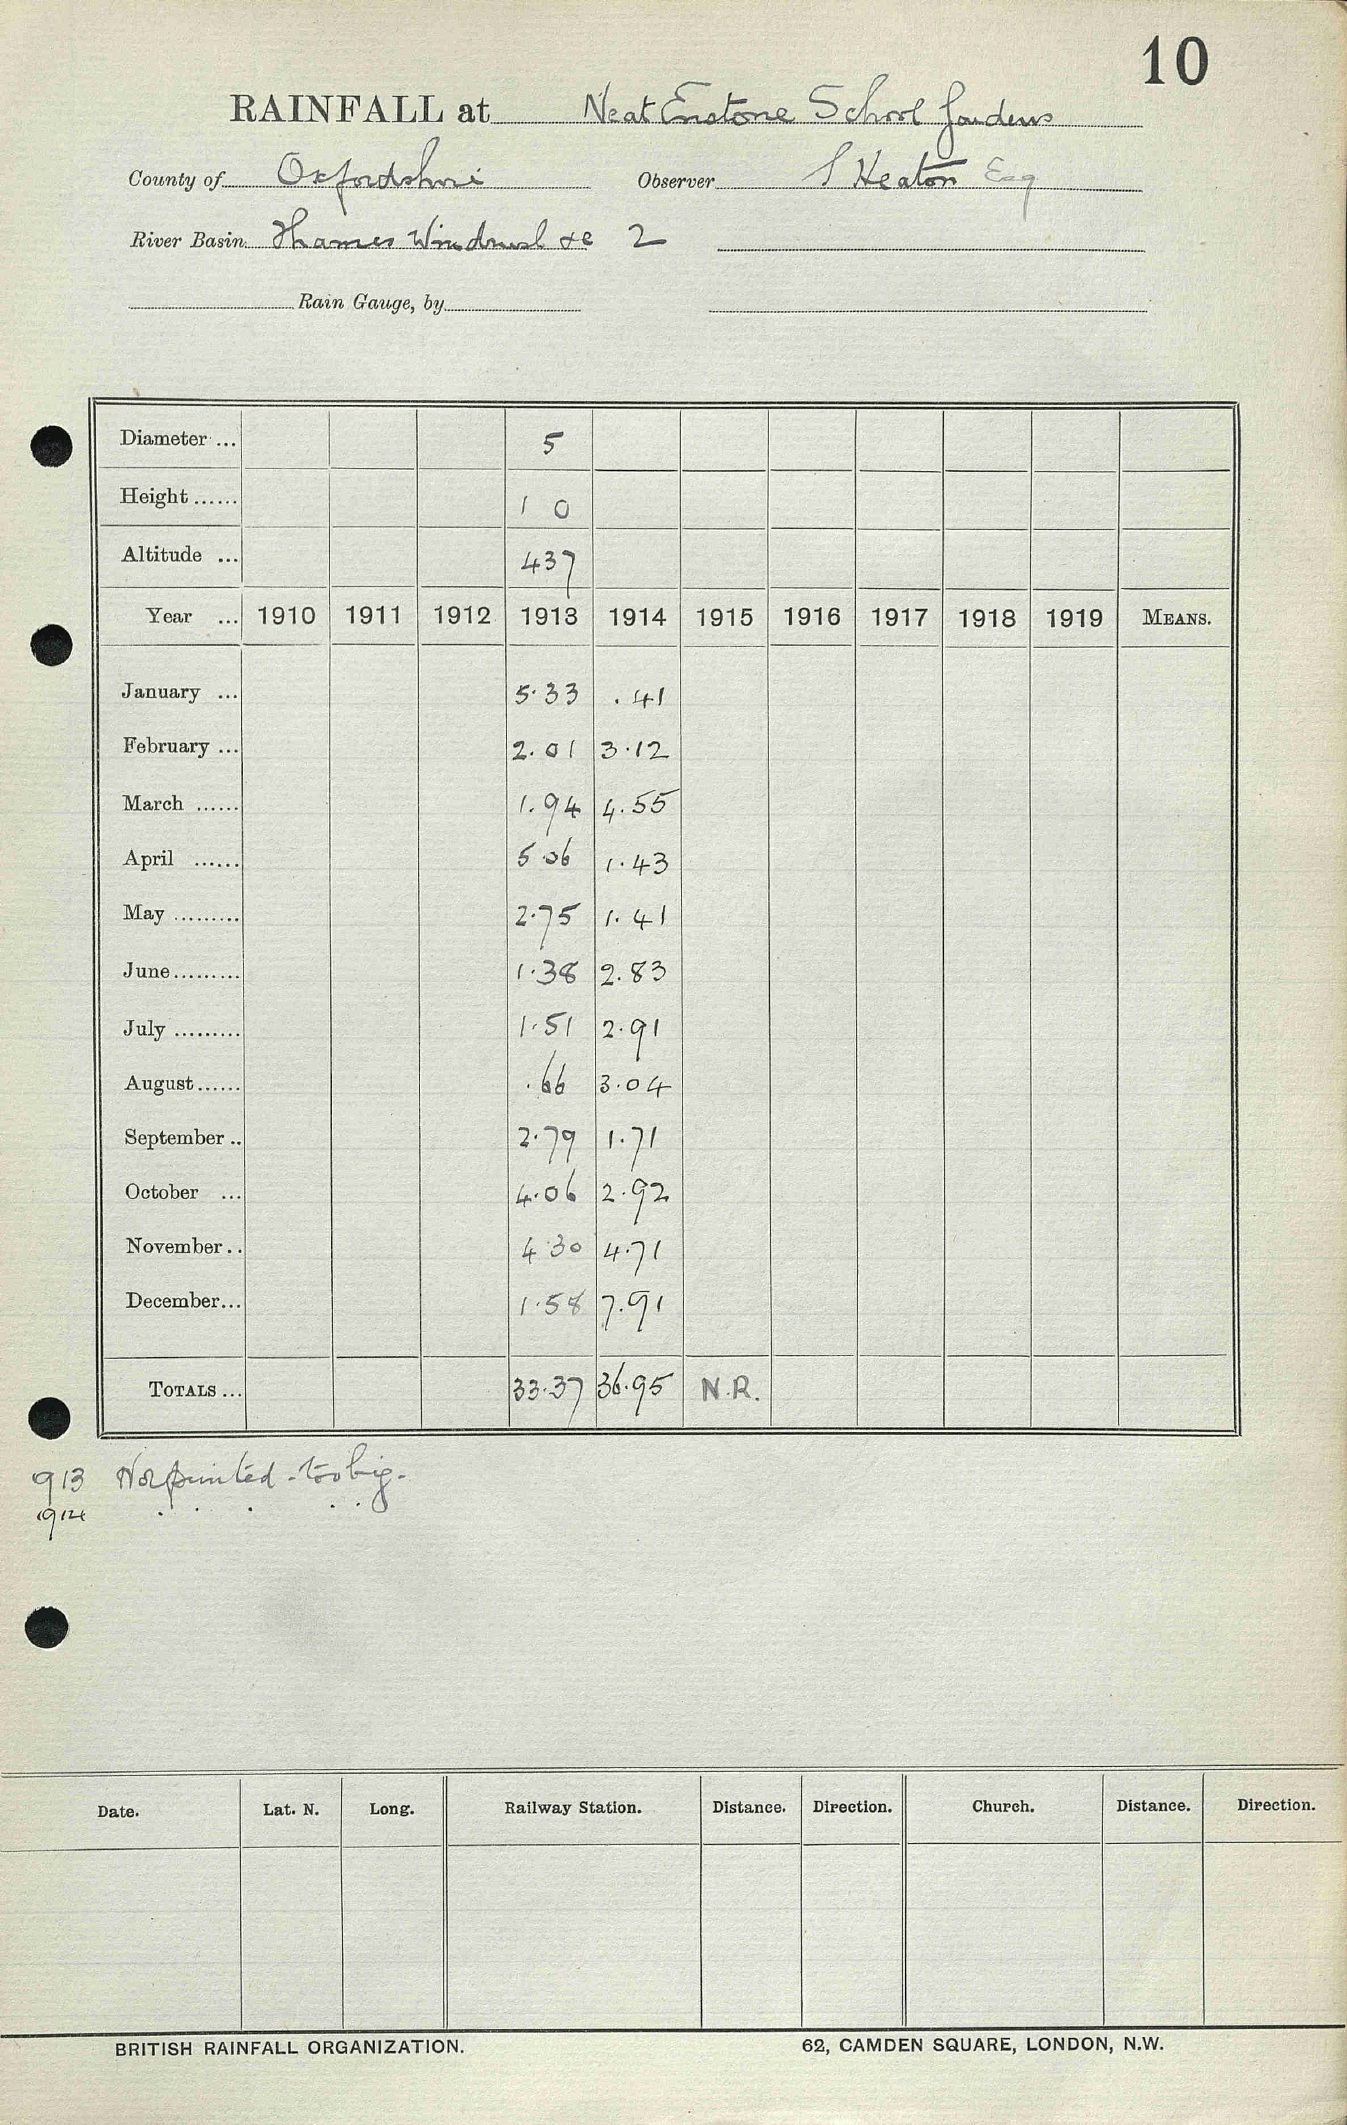 10
RAINFALL at Neat Enstone School Gardens
County of Oxfordshire Observer S Heaton Esq
River Basin Thames Windrush &c 2
Rain Gauge, by
Diameter ... 5
Height ...... 1 0
Altitude ... 437
Year ... 1910 1911 1912 1913 1914 1915 1916 1917 1918 1919 MEANS.
January ... 5.33 .41
February ... 2.01 3.12
March ...... 1.94 4.55
April ...... 5.06 1.43
May ......... 2.75 1.41
June ......... 1.38 2.83
July ......... 1.51 2.91
August ...... .66 3.04
September .. 2.79 1.71
October ... 4.06 2.92
November .. 4.30 4.71
December ... 1.58 7.91
TOTALS ... 33.37 36.95 N.R.
1913 Not printed - too big -
1914 . . . . .
Date. Lat. N. Long. Railway Station. Distance. Direction. Church. Distance. Direction.
BRITISH RAINFALL ORGANIZATION. 62, CAMDEN SQUARE, LONDON, N.W.